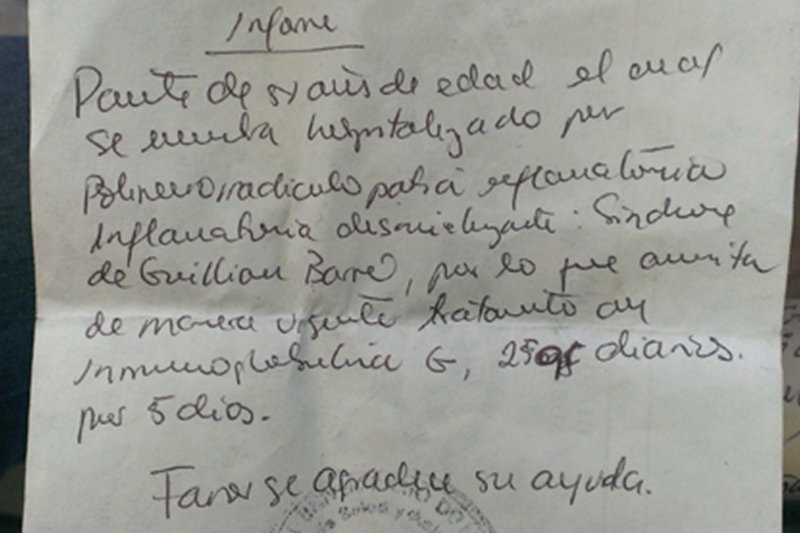 Informe
Paciente de 51 años de edad el cual
se encuentra hospitalizado por
Polineurorradiculopatía inflamatoria
Inflamatoria desmielizante: Síndrome
de Guillian Barré, por lo que amerita
de manera urgente tratamiento con
Inmunoglobulina G, 25 gr diarios.
por 5 dias.
Favor se agradece su ayuda.